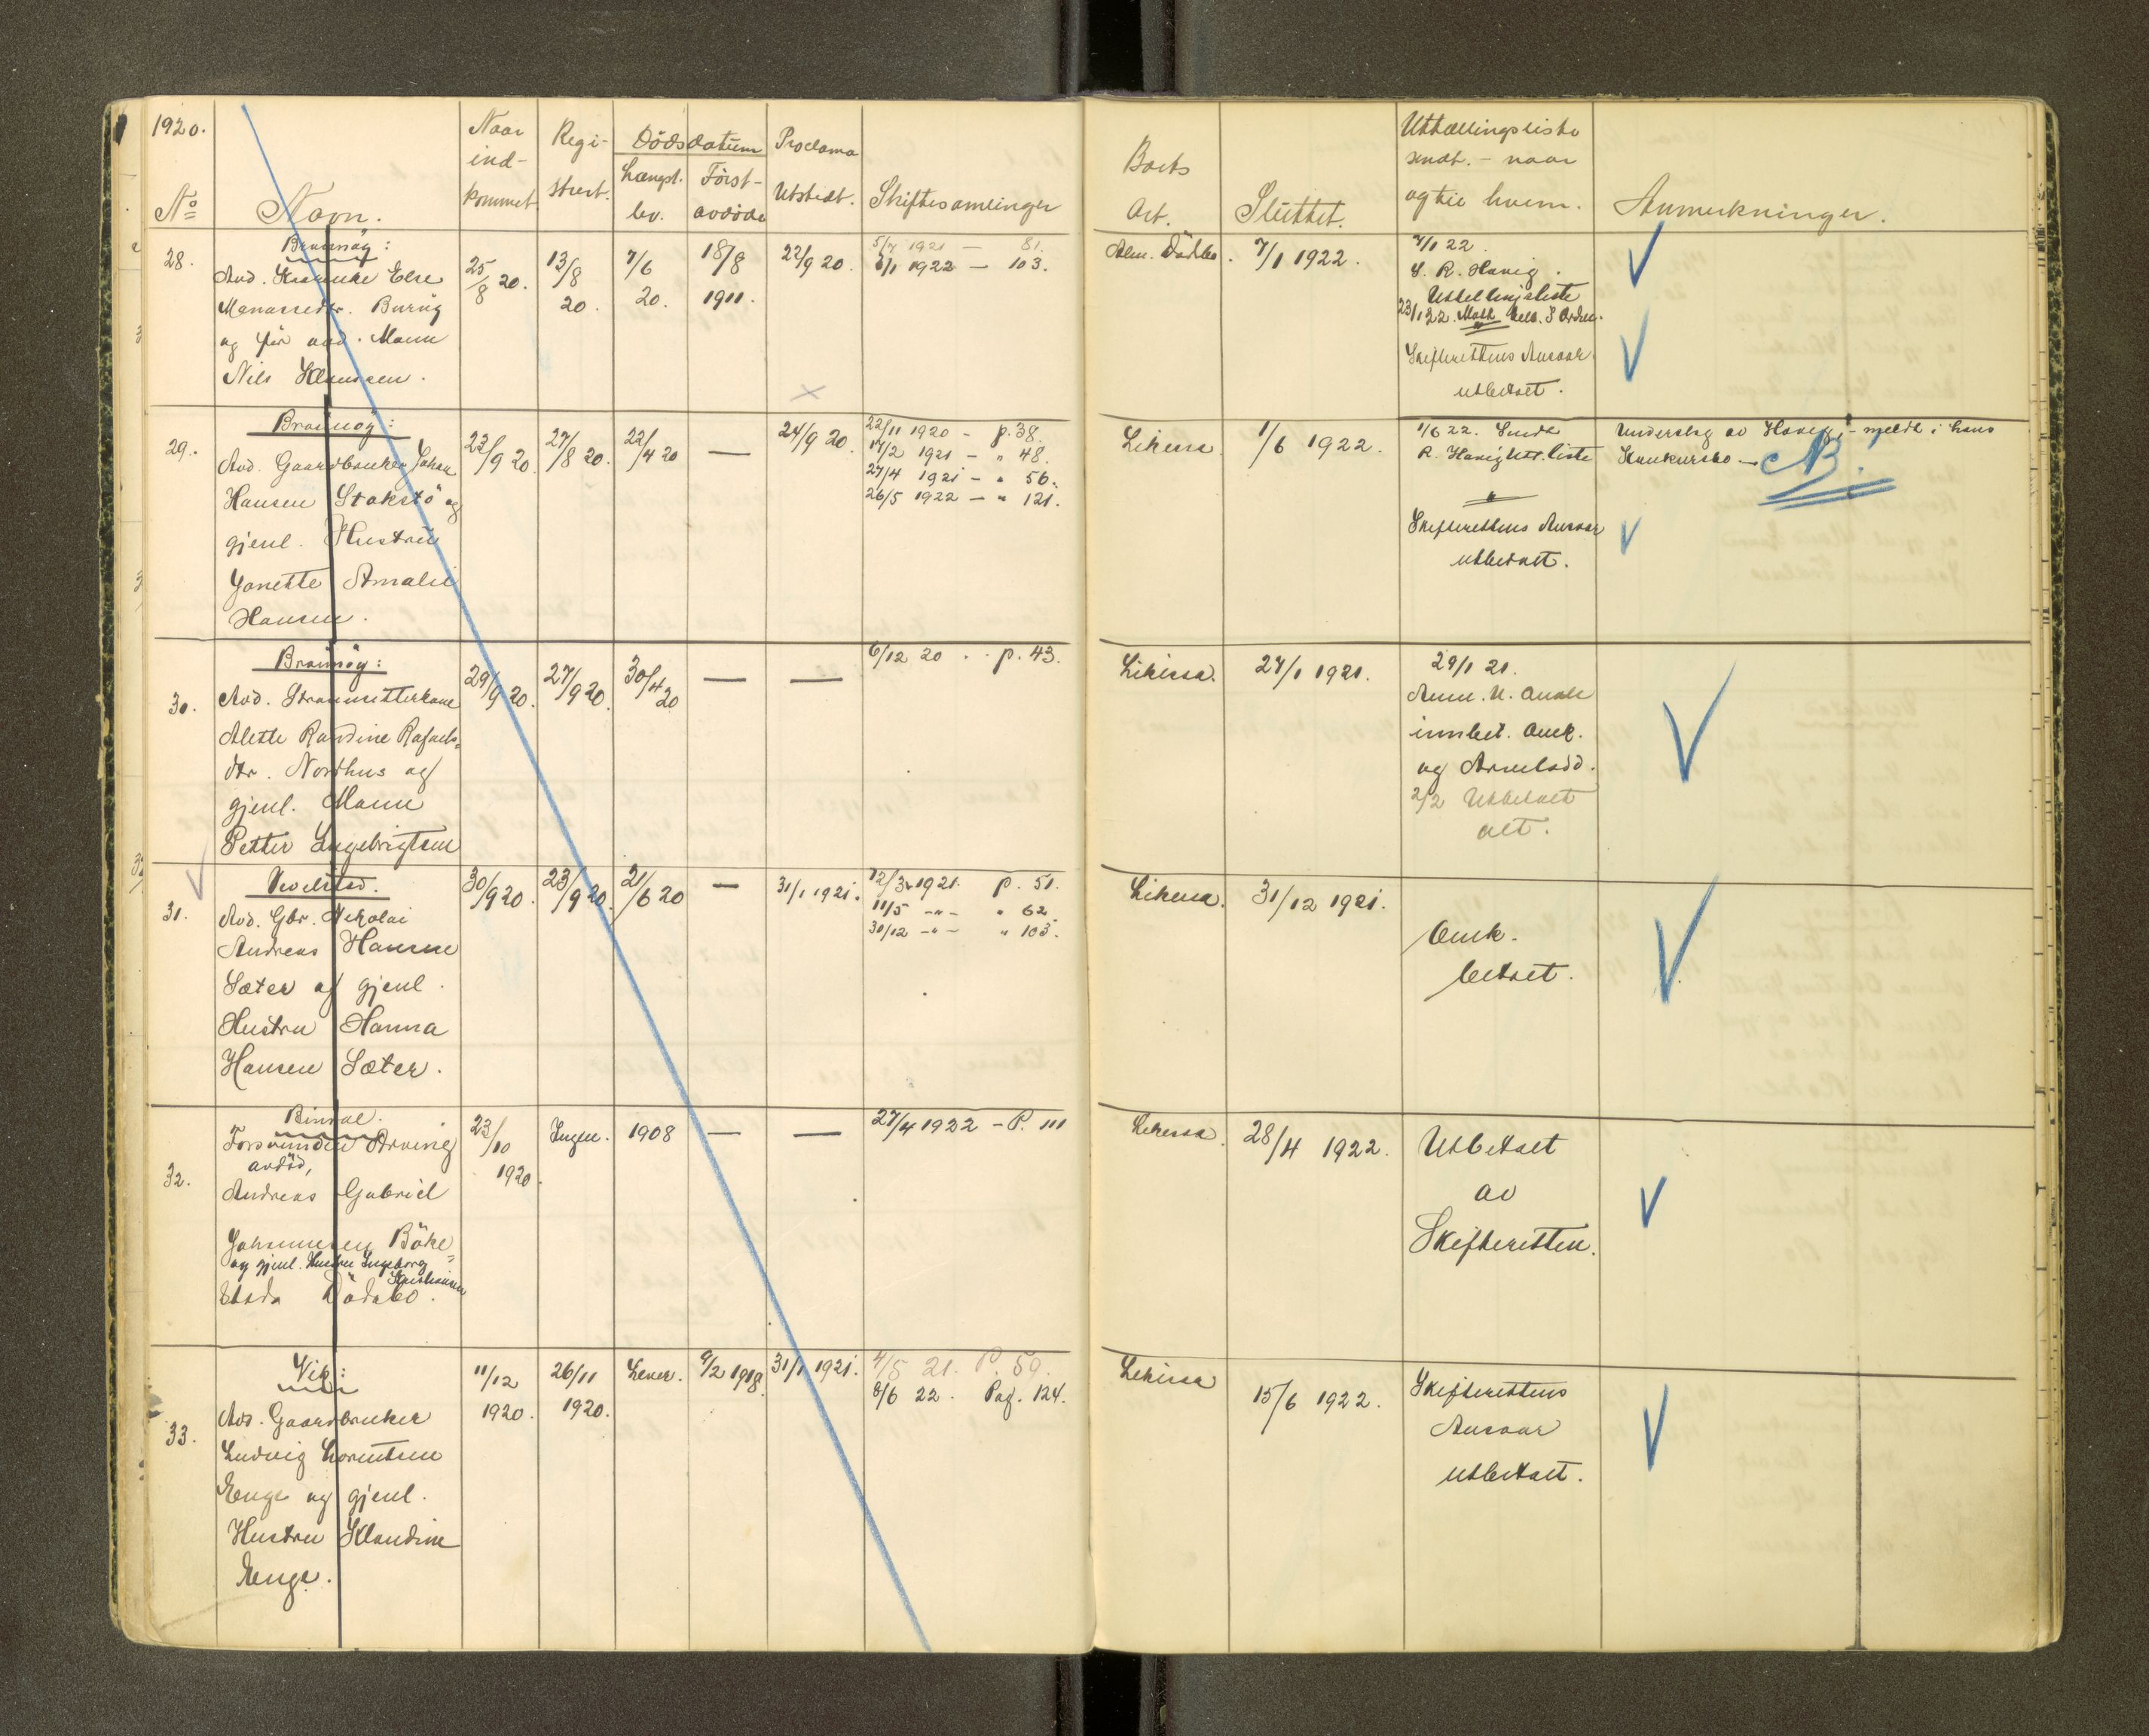 1920.
No
Navn.
Naar
ind-
kommet.
Regi-
strert.
Dödsdatum
Længst.
lev.
Först-
avdöde
Proclama
Utstedt.
Skiftesamlinger
Boets
Art.
Sluttet.
Uttællingsliste
sendt. - naar
og til hvem.
Anmerkninger.
28.
Brønnöy:
Avd. Else
og før avd. Mann
Nils
25/8 20.
13/8
20.
7/6
20.
18/8
1911.
22/9 20.
5/7 1921 — 81.
6/1 1922 — 103.
Alm. Dødsbo.
7/1 1922.
7/1 22.
S. R. Havig.
Uttellingsliste
23/1 22.
Skifterettens Ansvar
utbetalt.
29.
Brønnöy:
Avd. Gaardbruker Johan
Hansen Stokstö og
gjenl. Hustru
Janette Amalie
Hansen.
23/9 20.
27/8 20.
22/4 20
—
24/9 20.
22/11 1920 - p. 38.
17/2 1921 - " 48.
27/4 1921 - " 56.
26/5 1922 - " 121.
Likessa.
1/6 1922.
1/6 22. Sendt
R. Havig Utt. liste
"
Skifterettens Ansvar
utbetalt.
Underslag av Havig - meldt i hans
Konkursbo - NB.
30.
Brönnöy:
Avd. Strømsitterkone
Alette Randine Rafaels-
dtr. Nordhus og
gjenl. Mann
Petter Ingebrigtsen
29/9 20.
27/9 20.
30/4 20
—
—
6/12 20 . . p. 43.
Likessa.
27/1 1921.
29/1 21.
innbet.
og
2/2 Utbetalt
alt.
31.
Vevelstad.
Avd. Gbr. Nikolai
Andreas Hansen
Sæter og gjenl.
Hustru Hanna
Hansen Sæter.
30/9 20.
23/9 20.
21/6 20
—
31/1 1921.
12/3 1921. p. 51.
11/5 -"- " 62.
30/12 -"- " 103.
Likessa.
31/12 1921.
Omk.
betalt.
32.
Bindal.
Forsvunden Arving
avdöd,
Andreas Gabriel
Johannesen Böke-
og gjenl. Hustru Ingeborg
Kristiansen
Dödsbo.
23/10
1920.
Ingen.
1908
—
—
27/4 1922 - P. 111
Likessa.
28/4 1922.
Utbetalt
av
Skifteretten.
33.
Vik:
Avd. Gaardbruker
Ludvig Lorentsen
Enge og gjenl.
Hustru Klaudine
Enge.
11/12
1920.
26/11
1920.
Lever.
9/2 1918.
31/1 1921.
4/5 21. P. 59.
8/6 22. Pag. 124.
Likessa
15/6 1922.
Skifterettens
Ansvar
utbetalt.